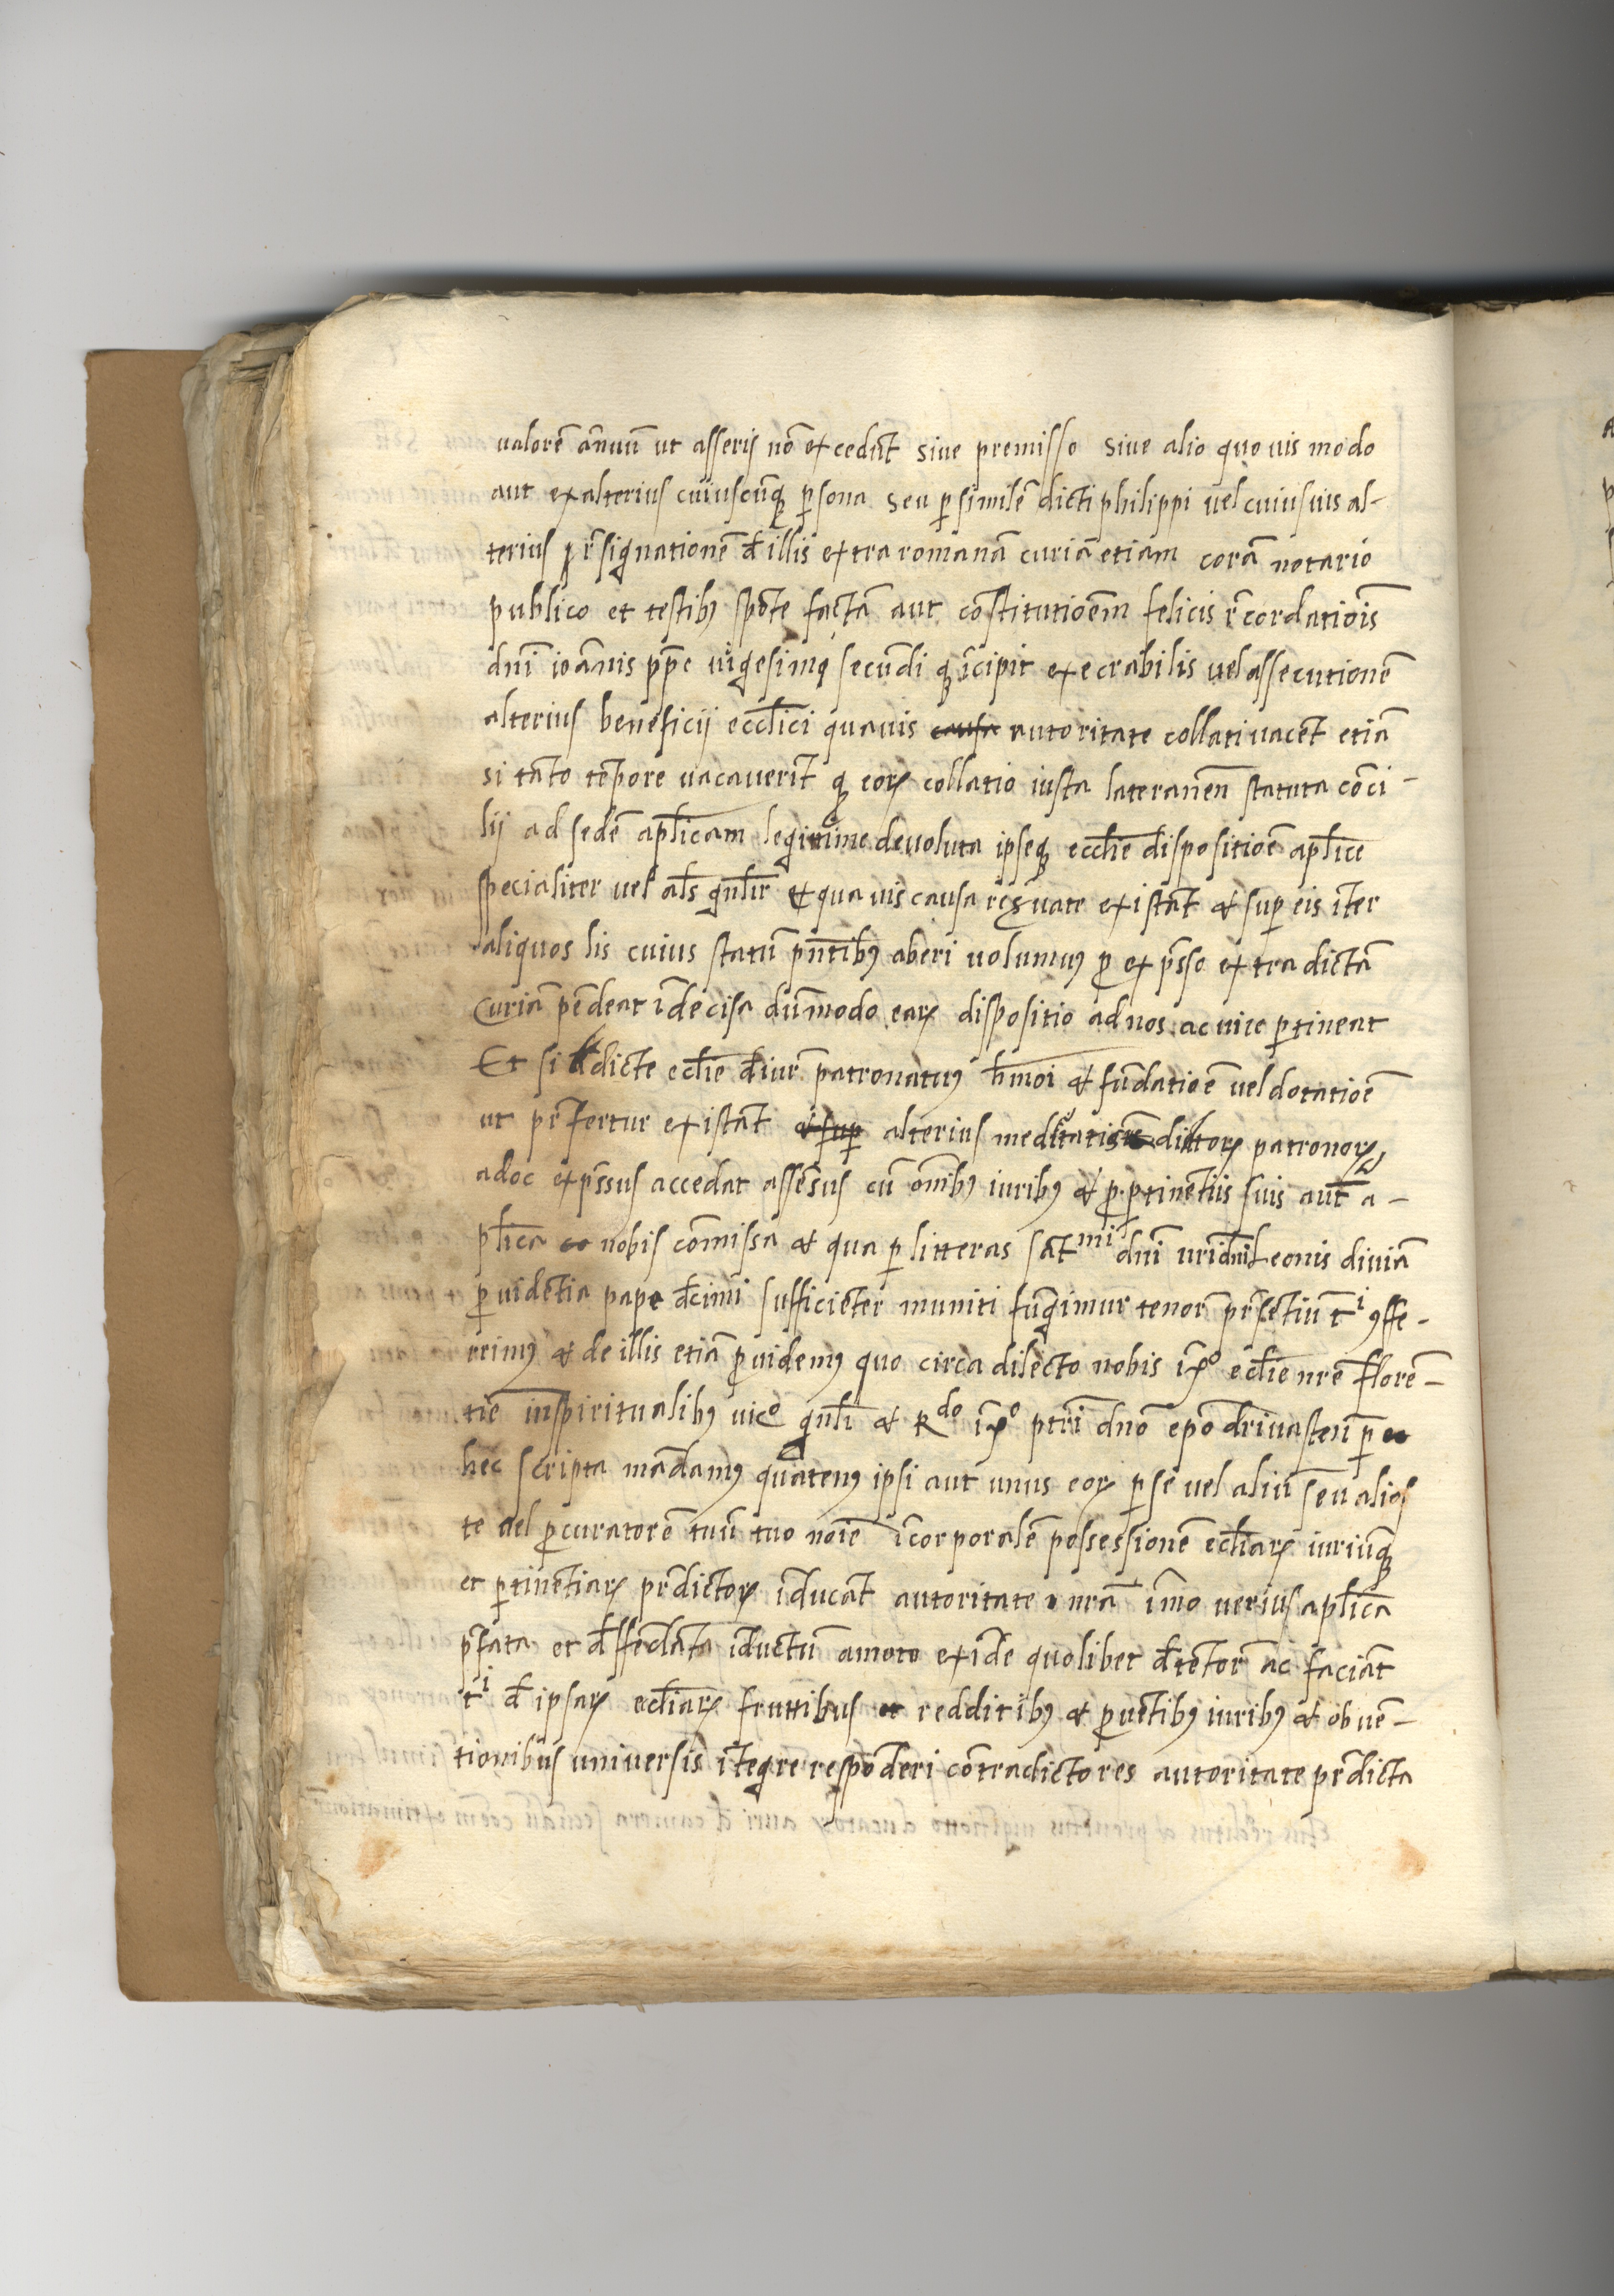 valorē ānuū ut asseris nō excedūt siue premisso siue alio quouis modo
aut exalterius cuiuscūqꝫ ꝑsona seu ꝑ similē dicti philippi uel cuiusuis al-
terius pr̄signationē d̄ illis extra romanā curiā etiam corā notario
publico et testibꝰ spōte factā aut cōstitutioēm felicis r̄cordatiōis
dnī ioānis pp̄e uigesimi secūdi qꝫ īcipit execrabilis uel assecutionē
alterius beneficij eccl̄ici quauis causa autoritate collati uacēt etiā
si tāto tēpore uacauerīt qꝫ eoꝝ collatio iusta lateranēn statuta cōci-
lij ad sedē apl̄icam legitime deuoluta ipseqꝫ eccl̄ie dispositiōe apl̄ice
specialiter uel al̄s gnl̄ir et qua uis causa res̄uate existāt et suꝑ eis īter
aliquos lis cuius statū pn̄tibꝰ aberi uolumꝰ ꝓ exp̄sso extra dictā
Curiā pēdeat īdecisa dūmodo eaꝝ dispositio ad nos ac uice ꝑtineat
Et si dicte ecl̄ie d̄ iur̄ patronatꝰ h̄moi et fūdatiōe uel dotatiōe
ut pr̄fertur existāt et suꝑ alterius dictoꝝ patronoꝝ
adoc exp̄ssus accedat assēsus cū ōnibꝰ iuribꝰ et ꝑtinētiis suis aut̄ a-
pl̄ica nobis cōmissa et qua ꝑ litteras sāt^mi dnī nrī dnī leonis diuiā
ꝓuidētia pape d̄cimi sufficiēter muniti fūgimur tenor̄ pr̄sētiū t^i ꝯffe-
rimꝰ et de illis etiā ꝓuidemꝰ quo circa dilecto nobis ī xp̄o ecl̄ie nr̄e florē-
tiē inspiritualibꝰ uic^o gnl̄i et R^do ī xp̄o ptrī dnō epō driuasteñ ꝑ
hec scripta mādamꝰ quatenꝰ ipsi aut unus eoꝝ ꝑ se uel aliū seu alios
te uel ꝓcuratorē tuū tuo noīe īcorporalē possessionē ecl̄iaꝝ iuriūqꝫ
et ꝑtinētiaꝝ pr̄dictoꝝ īducāt autoritate nrā īmo uerius apl̄ica
p̄fata et d̄ffēdāt īductū amoto exīde quolibet d̄tētor̄ ac faciāt
t^i d̄ ipsaꝝ ecl̄iaꝝ fruttibus et redditibꝰ et ꝓuētibꝰ iuribꝰ et obuē-
tionibus uniuersis ītegre respōderi cōtradictores autoritate pr̄dicta